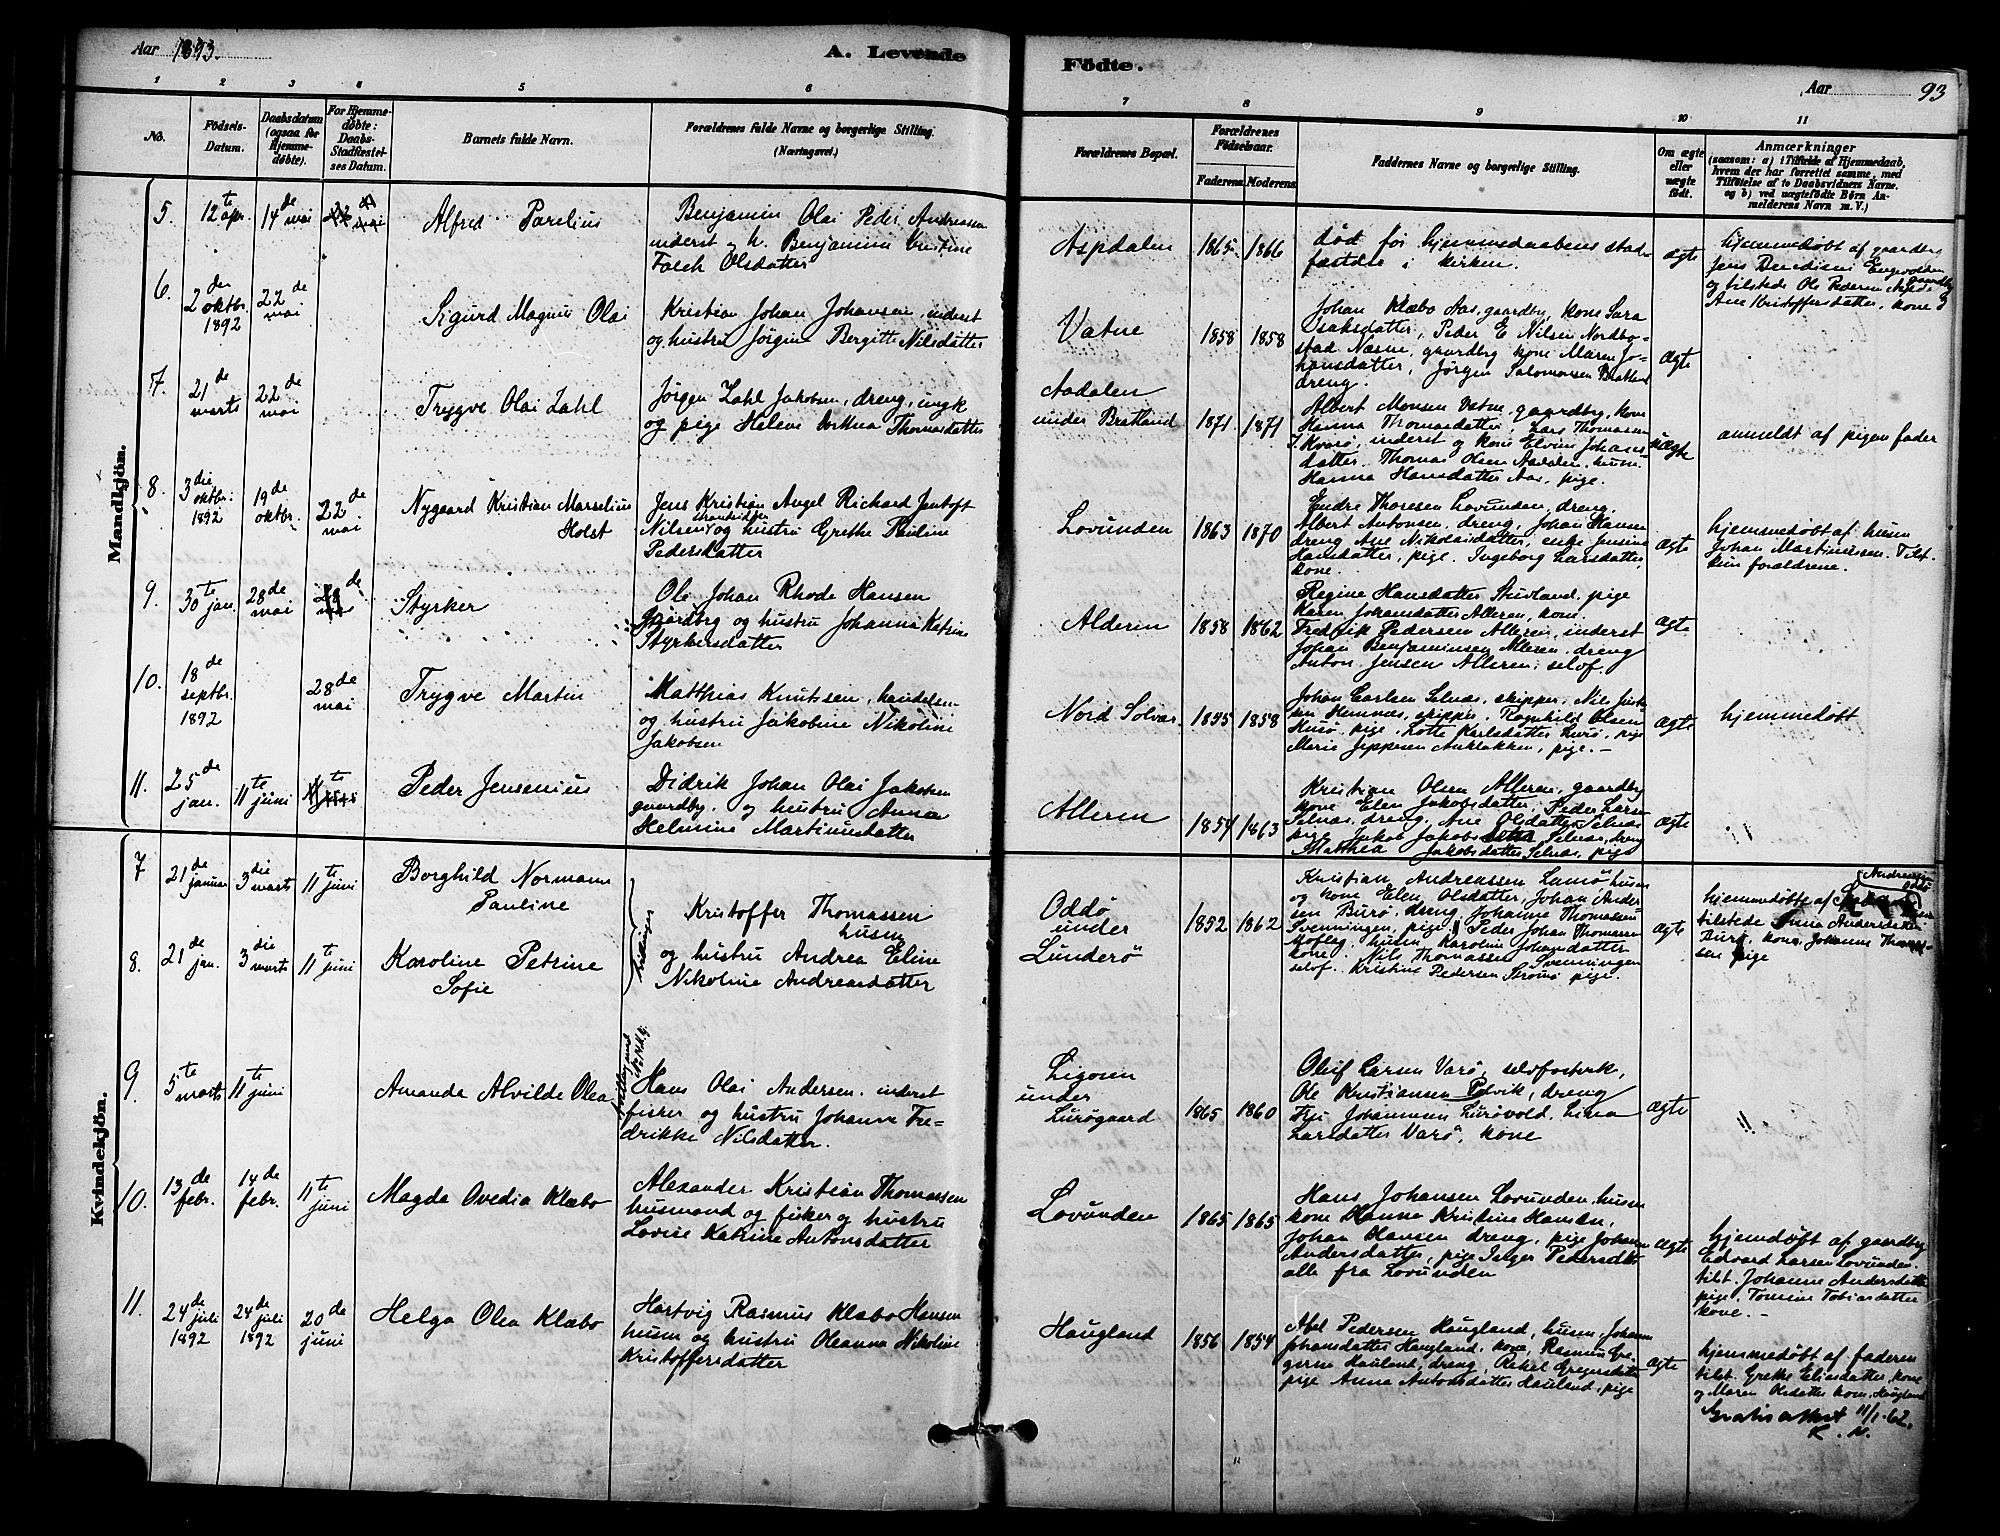 Aar 1893.
A. Levende
Födte.
Aar
93
1 2 3 4 5 6 7 8 9 10 11
No.
Födsels-Datum.
Daabsdatum (ogsaa for Hjemme-døbte).
For Hjemme-døbte: Daabs-Stadfæstel-ses Datum.
Barnets fulde Navn.
Forældrenes fulde Navne og borgerlige Stilling.
(Næringsvei.)
Forældrenes Bopæl.
Forældrenes Födselsaar.
Faderens. Moderens.
Faddernes Navne og borgerlige Stilling.
Om ægte eller uægte födt.
Anmærkninger
(saasom: a) i Tilfælde af Hjemmedaab,
hvem der har forrettet samme, med
Tilføielse af to Daabsvidners Navne.
og b) ved uægtefødte Børn An-
melderens Navn m.V.)
Mandkjön.
5. 12te apr. 14de mai
Alfred Parelius
Benjamin Olai Peder Andreassen
inderst og h. Benjamine Kristine
Falch Olsdatter
Aspdalen 1865. 1866
død før hjemmedaabens stad-
fæstelse i kirken.
ægte
hjemmedøbt af gaardbg
6. 2den oktbr. 1892 22de mai
Sigurd Magnus Olai
Kristian Johan Johansen, inderst
og hustru Jørgine Bergitte Nilsdatter
Vatne 1858 1858
Johan Klæbo Aas, gaardbg, kone Sara
Isaksdatter, Peder E Nilsen Nordbo-
stad Næsne, gaardbg kone Maren Jo-
hansdatter, Jørgen Salomonsen Bratland
dreng.
ægte
7. 21de marts 22de mai
Trygve Olai Zahl
Jørgen Zahl Jakobsen, dreng, ungk
og pige Helene Thomasdatter
Aadalen
under Bratland 1871 1871
Albert Monsen Vatne, gaardbg, kone
Hanna Thomasdatter, Lars Thomassen
Kvarø, inderst og kone Elvine Johans-
datter. Thomas Olsen Aadalen, husm.
Hanna Hansdatter Aas, pige.
uægte
anmeldt af pigens fader
8. 3die oktbr. 1892 19de oktbr. 22de mai
Nygaard Kristian Marselius
Holst
Jens Kristian Angel Richard Jentoft
Nilsen strandsidder og hustru Grethe Pauline
Pedersdatter
Lovunden 1863 1870
Endre Thoresen Lovunden, dreng.
Albert Antonsen, dreng, Johan Hansen
dreng Ane Nikolaisdatter, enke Jensine
Hansdatter, pige. Ingeborg Larsdatter
kone.
ægte
hjemmedøbt af husm
Johan Martinussen. Tilst
kun forældrene.
9. 30te jan. 28de mai
Styrker
Ole Johan Rhode Hansen
gaardbg og hustru Johanna Katrine
Styrkersdatter
Alderen 1858 1862
Regine Hansdatter Stuvland, pige
Karen Johansdatter Alleren, kone.
Fredrik Pedersen Alleren, inderst
Johan Benjaminsen Alleren, dreng
Anton Jensen Alleren, selvf.
ægte
10. 18de septbr. 1892 28de mai
Trygve Martin
Matthias Knutsen, handelsm
og hustru Jakobine Nikoline
Jakobsen
Nord Solvær. 1855 1858
Johan Carlsen Selnæs, skipper,
Hemnæs, skipper. Ragnhild Olsen
Husø, pige, Lotte Karlsdatter Lurø, pige
Marie Jeppesen, pige.
ægte
hjemmedøbt
11. 25de jan. 11te juni
Peder Jensenius
Didrik Johan Olai Jakobsen
gaardbg. og hustru Anna
Helmine Martinusdatter
Alleren 1854 1863
Kristian Olsen Alleren, gaardbg
kone Elen Jakobsdatter, Peder Larsen
Selnæs, dreng, Ane Olsdatter Selnæs
pige Jakob Selnæs, dreng
Matthea Jakobsdatter Selnæs, pige
ægte
Kvindekjön.
7 21de januar 3die marts 11te juni
Borghild Normann
Pauline
8. 21de jan. 3die marts 11te juni
Karoline Petrine
Sofie
Kristoffer Thomassen
husm
og hustru Andrea Eline
Nikoline Andreasdatter
Oddø
under
Lunderø 1852 1862
Kristian Andreassen Lamø, husm
og kone Elen Olsdatter, Johan Ander
sen Burø, dreng, Johanne Thomassen
Svenningen, pige. Peder Johan Thomassen
husm, Karoline Johansdatter
kone. Nils Thomassen Svenningen
selvf. Kristine Pedersen Strømø pige.
ægte
hjemmedøbte af
tilstede
Burø, kone, Johanne Thomas-
sen pige
9. 5te marts 11te juni
Amanda Alvilde Olea
Hans Olai Andersen, inderst
fisker og hustru Johanne Fre-
drikke Nilsdatter.
Ligosen
under
Lurøgaard 1865 1860
Oluf Larsen Varø, selvforstørk,
Ole Kristiansen Solvik, dreng
Johannesen Lurøvold, Lina
Larsdatter Varø, kone
ægte
10. 13de febr. 14de febr. 11te juni
Magda Ovedia Klæbo
Alexander Kristian Thomassen
husmand og fisker og hustru
Lovise Katrine Antonsdatter
Lovunden 1865 1865
Hans Johansen Lovunden, husm
kone Hanna Kristine Hansen,
Johan Olausen dreng, pige Johanne
Andersdatter, pige Inger Pedersdtr
alle fra Lovunden
ægte
hjemdøbt af gaardbg
Edvard Larsen Lovunden.
tilst. Johanne Andersdatter
pige. Tomine Tobiasdatter
kone.
11. 24de juli 1892 24de juli 1892 20de juni
Helga Olea Klæbo
Hartvig Rasmus Klæbo Hansen
husm og hustru Oleanna Nikoline
Kristoffersdatter
Haugland 1856 1854
Abel Pedersen Haugland, husm, Johanne
Johansdatter Haugland, kone, Rasmus Gre-
gersen Hauland, dreng, Rakel Gregersdatter
pige Anna Antonsdatter Hauland, pige
ægte
hjemmedøbt af faderen
tilst. Grethe Eliasdatter, kone
og Maren Olsdatter kone, Haugland
Gratis attest 11/1-62.
K. N.